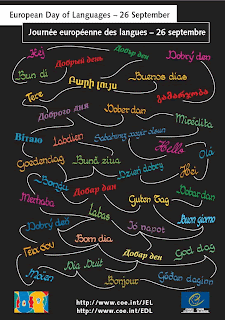 European Day of Languages – 26 September
Journée européenne des langues – 26 septembre
Hej Добър ден
Добрый день Dobrý den
Bun di Buenos días
Tere Բարի լույս გამარჯობა
Доброго дня Dober dan Mirëdita
Вітаю Labdien Hello Olá
Goedendag Bună ziua Hei
Bongu Dzień dobry Dobar dan
Merhaba Добар ден
Labas Guten Tag Buon giorno
Dobrý deň Jó napot
Γεια σου Bom dia God dag
Dia Duit Добар дан
Moien Bonjour Góðan daginn
http://www.coe.int/JEL
http://www.coe.int/EDL